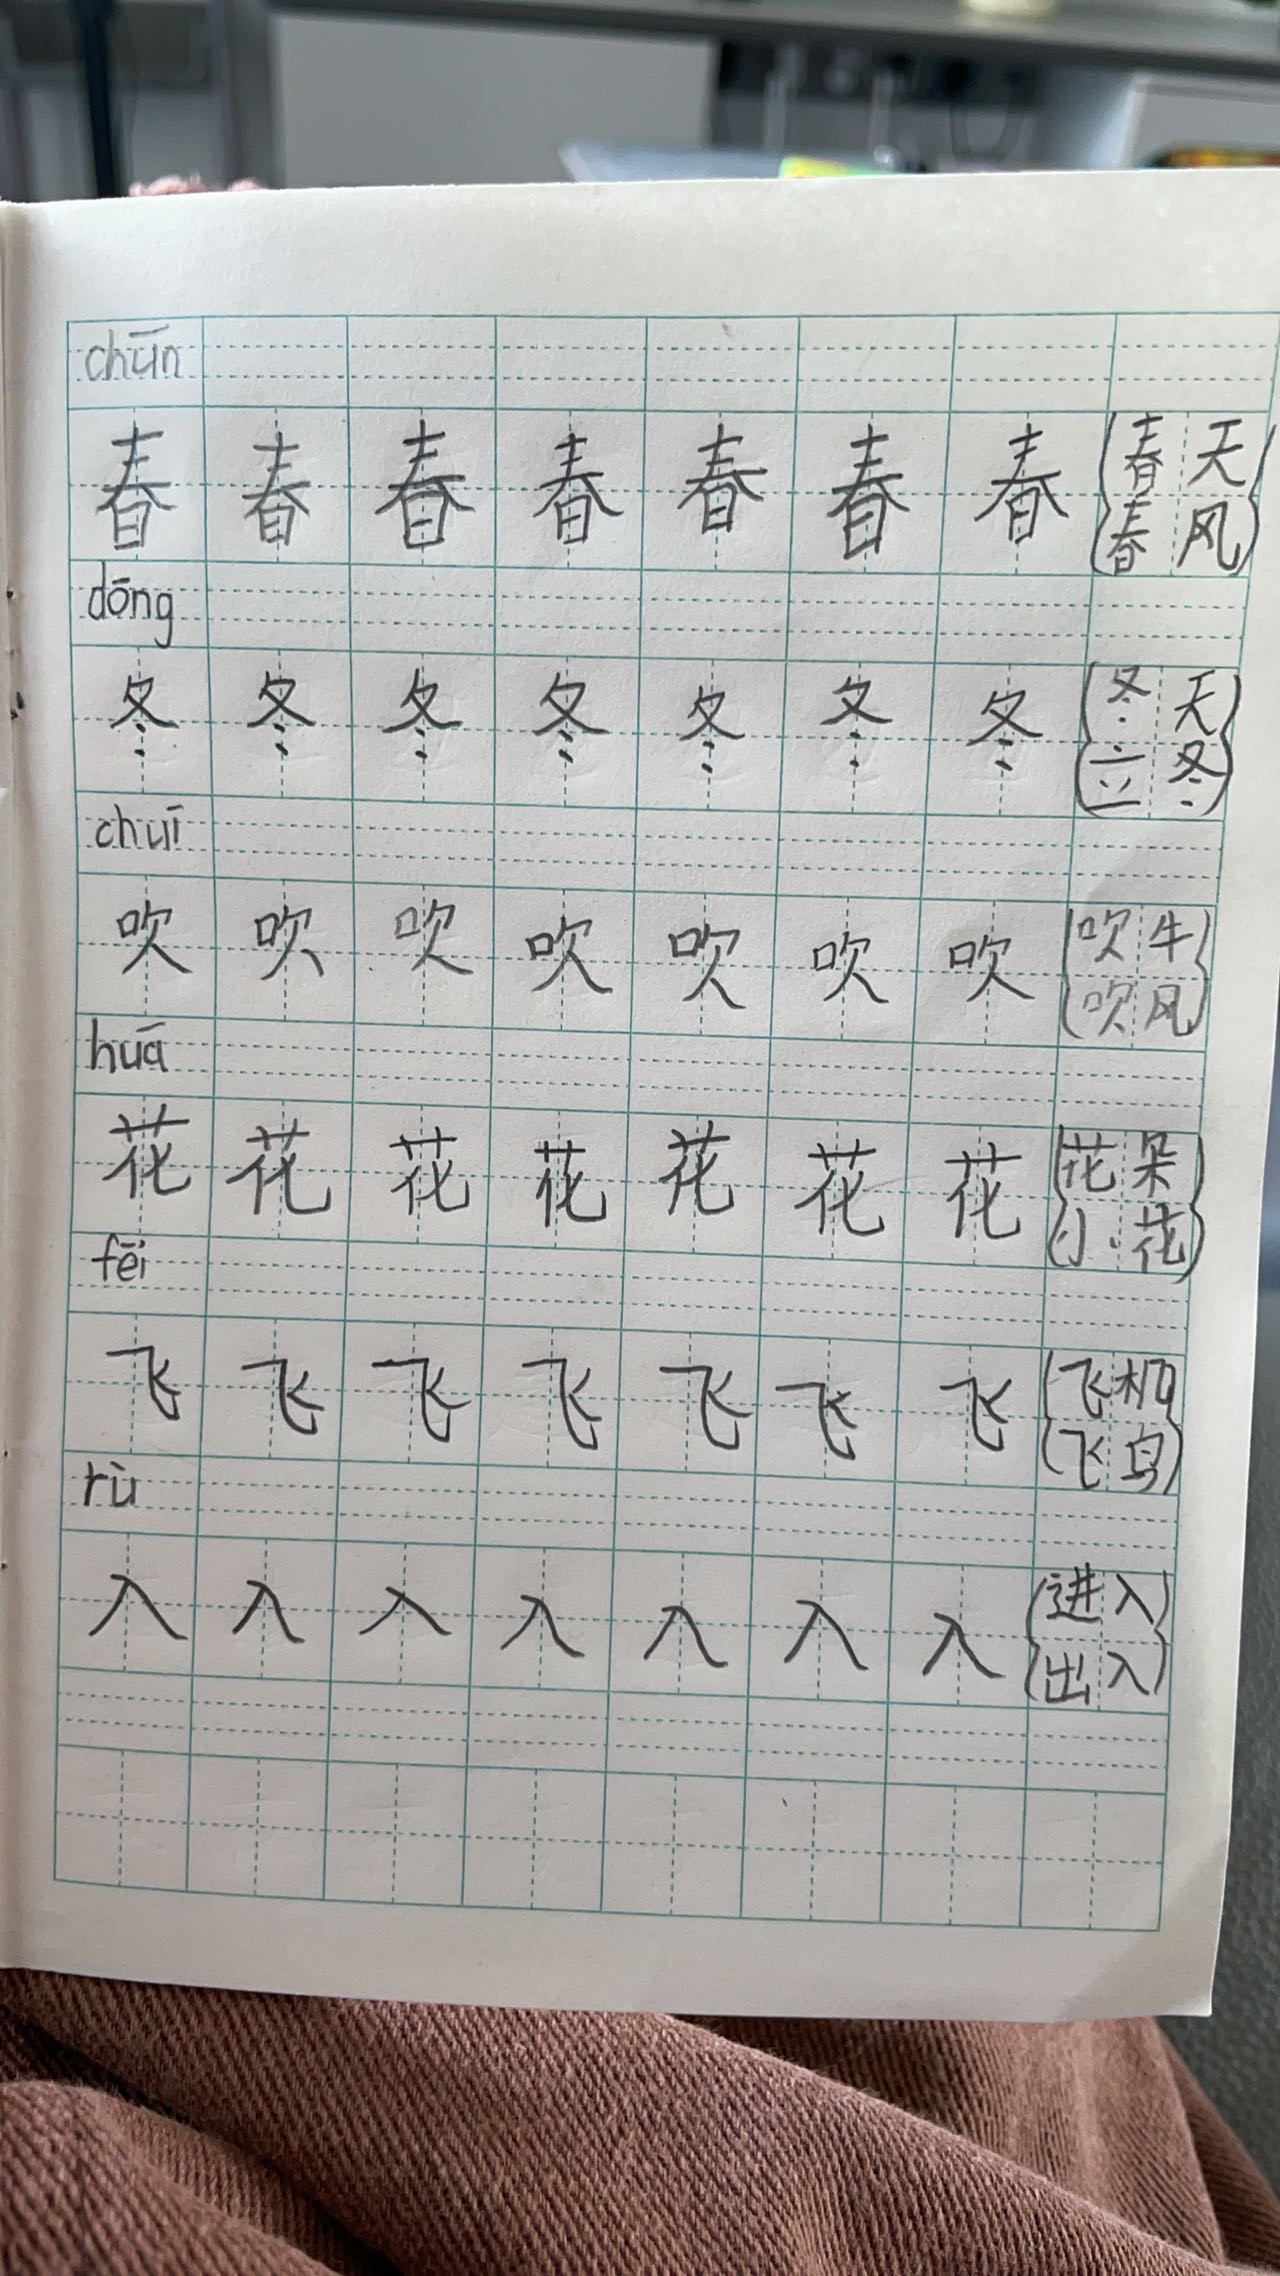 chūn
春 春 春 春 春 春 春 春天
春风
dōng
冬 冬 冬 冬 冬 冬 冬 冬天
立冬
chuī
吹 吹 吹 吹 吹 吹 吹 吹牛
吹风
huā
花 花 花 花 花 花 花 花朵
小花
fēi
飞 飞 飞 飞 飞 飞 飞 飞机
飞鸟
rù
入 入 入 入 入 入 入 进入
出入